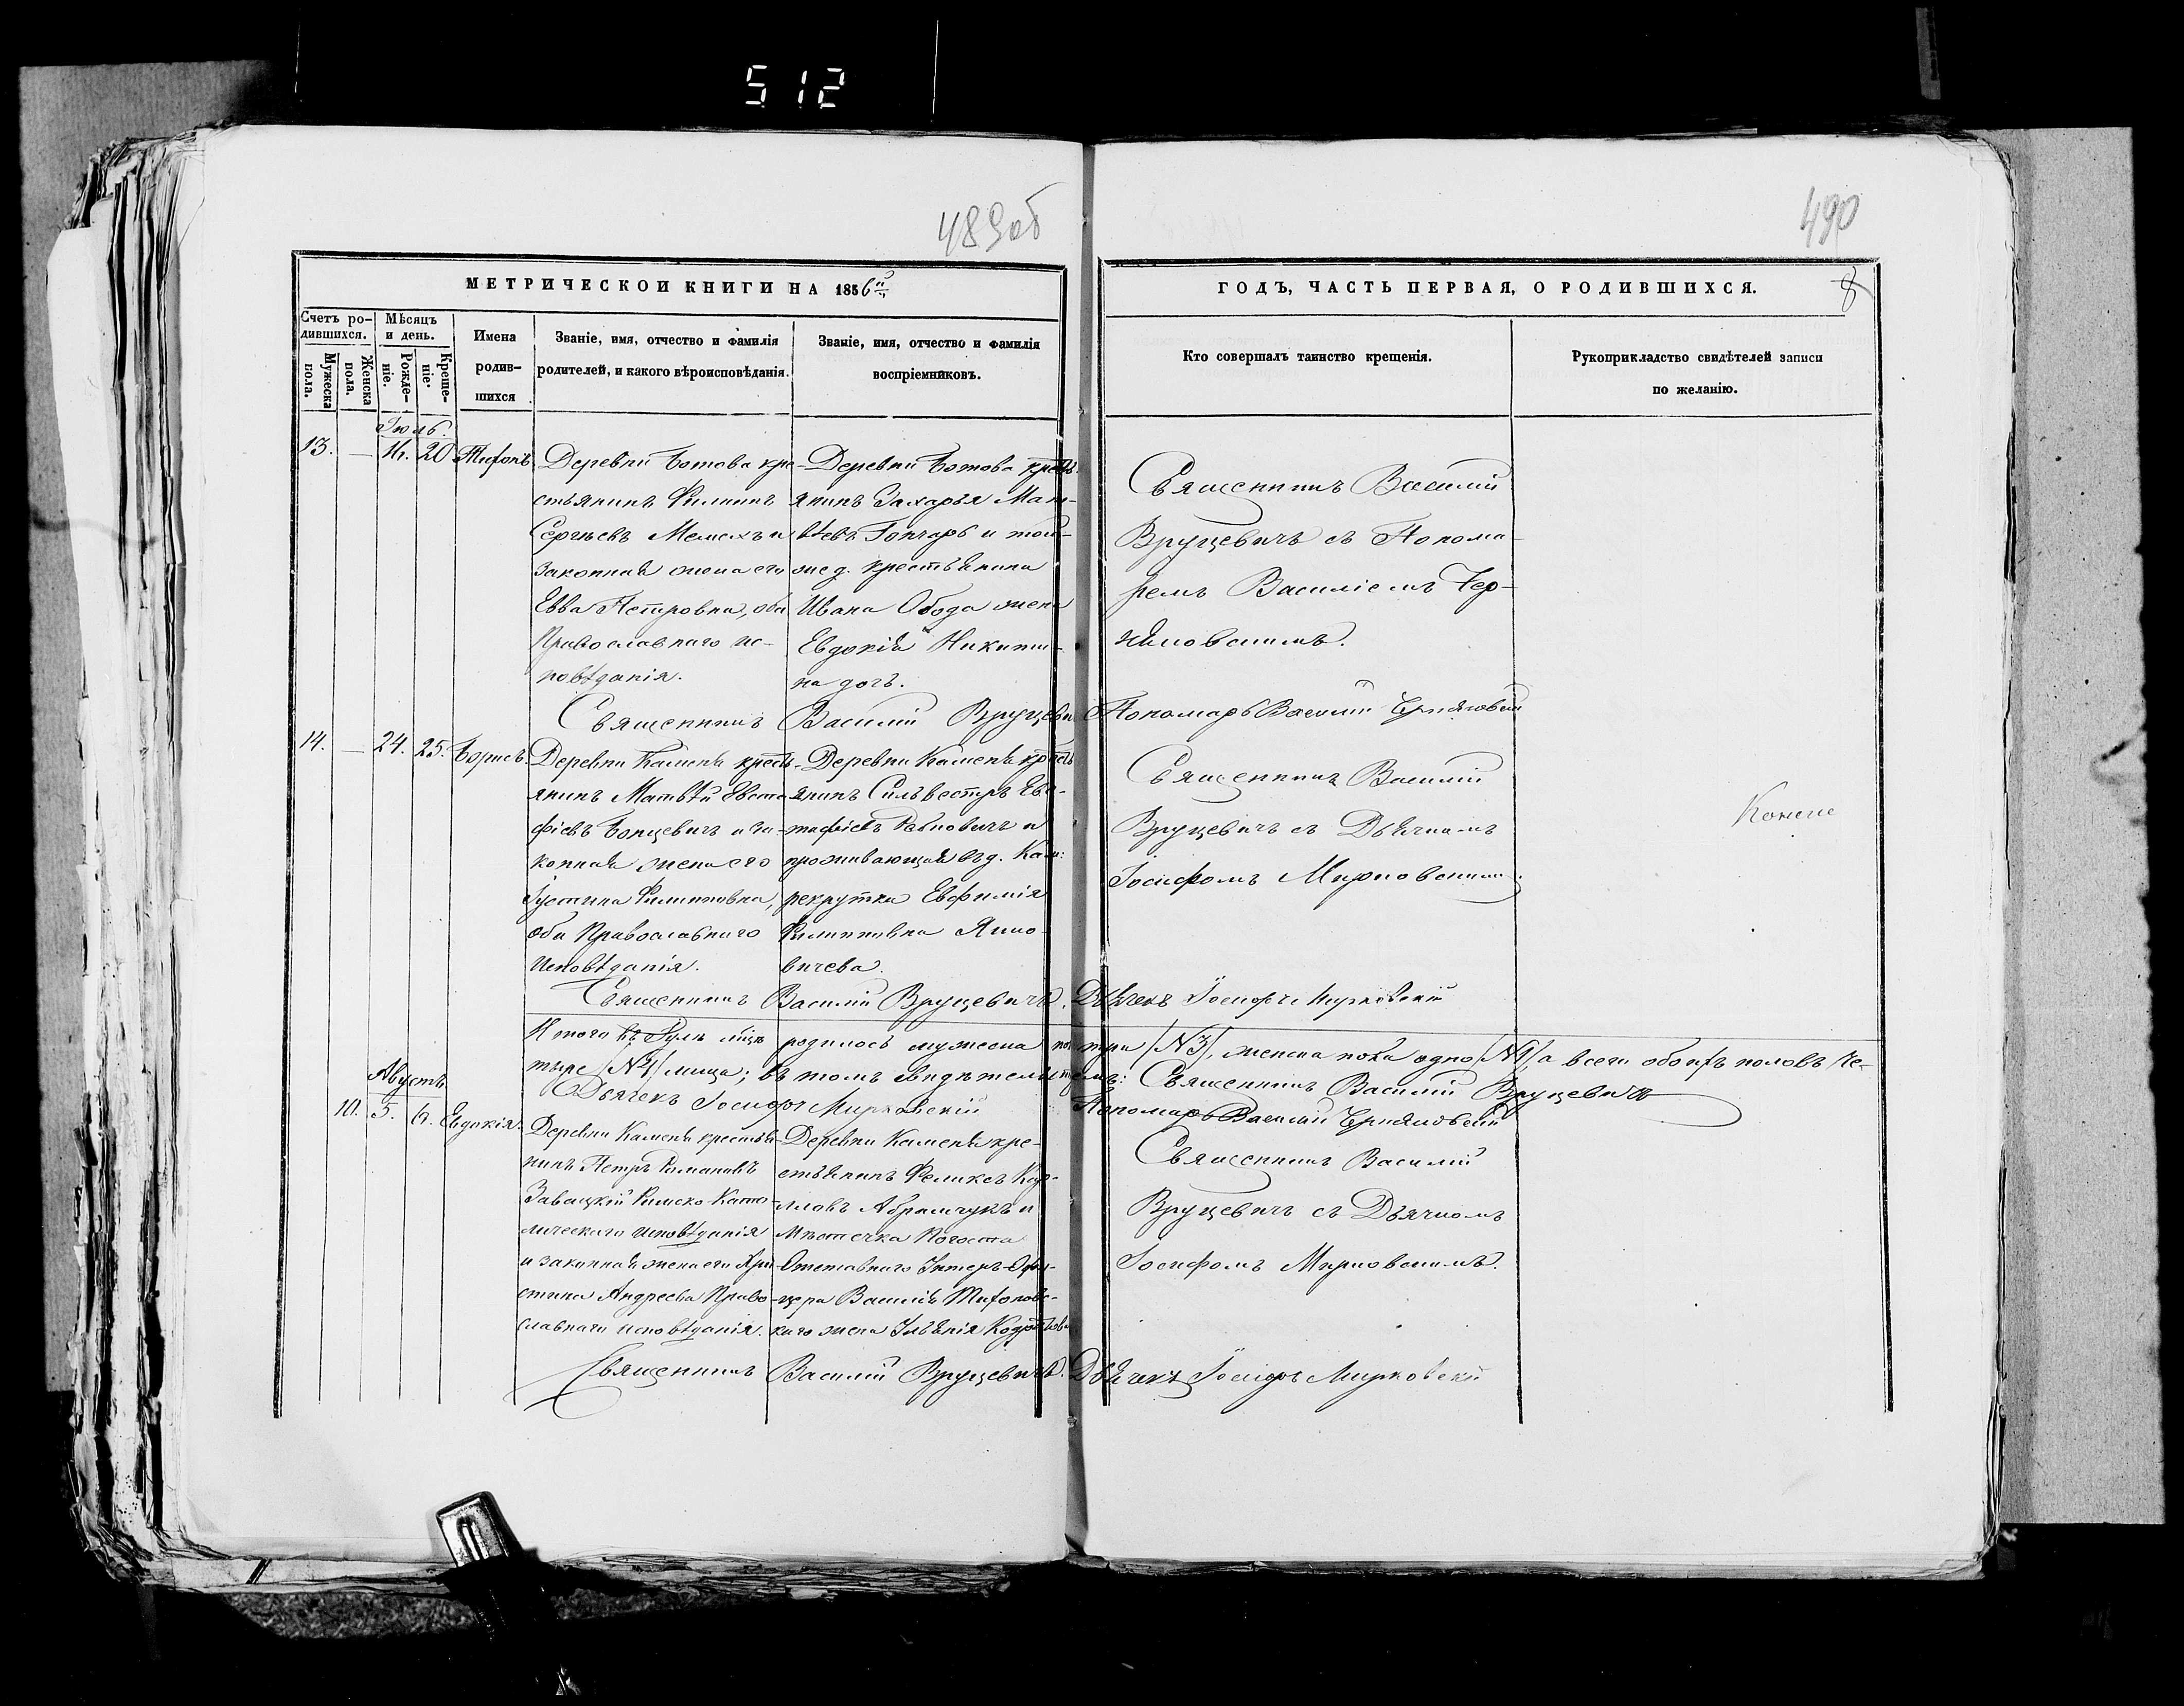 512
489 об
490
МЕТРИЧЕСКОЙ КНИГИ НА 1856й
ГОДЪ, ЧАСТЬ ПЕРВАЯ, О РОДИВШИХСЯ.
8
Счетъ ро-
дившихся.
Мужеска
пола.
Женска
пола.
Мѣсяцъ
и день.
Рожде-
ніе.
Креще-
ніе.
Имена
родив-
шихся
Званіе, имя, отчество и фамилія
родителей, и какого вѣроисповѣданія.
Званіе, имя, отчество и фамилія
воспріемниковъ.
Кто совершалъ таинство крещенія.
Рукоприкладство свидѣтелей записи
по желанію.
Іюль.
13. — 20 Тихонъ
Деревни Ботова кре-
стьянинъ Филиппъ
Сергѣевъ Мелехъ и
законная жена его
Евва Петровна, оба
Православнаго ис-
повѣданія.
Деревни Ботова кресть-
янинъ Захарья Мат-
вѣевъ Гончаръ и той-
же д. крестьянина
Ивана Обода жена
Евдокія Никити-
на дочь.
Священникъ Василій
Вруцевичъ съ Понома-
ремъ Василіемъ Чер-
няковскимъ.
Священникъ Василій Вруцеви Пономарь Василій Черняковскій
14. — 24. 25. Борисъ.
Деревни Каменя кресть-
янинъ Матвѣй Евста-
фіевъ Борцевичъ и за-
конная жена его
Іустина Филипповна,
оба Православнаго
Исповѣданія.
Деревни Каменя кресть
янинъ Сильвестръ Евс-
тафіевъ и
проживающая въ д. Кам:
рекрутка Евфимія
Филипповна Яно-
вичева.
Священникъ Василій
Вруцевичъ съ Дьячкомъ
Іосифомъ Мирковскимъ.
Священникъ Василій Вруцевичъ. Дьячекъ Іосифъ Мирковскій
Итого въ Іулѣ мѣцѣ родилось мужеска пола три /№3/, женска пола одно /№1/, а всего обоихъ половъ че-
тыре /№4/ лица; въ томъ свидѣтельствуемъ: Священникъ Василій Вруцевичъ
Дьячекъ Іосифъ Мирковскій
Пономарь Василій Черняковскій
Августъ
10. 5. 6. Евдокія.
Деревни Каменя крестья-
нинъ Петръ Романовъ
Завацкій Римско-Като-
лическаго исповѣданія
и законная жена его Хри-
стина Андреева Право-
славнаго исповѣданія.
Деревни Каменя кре-
стьянинъ Феликсъ Кар-
ловъ Абрамчукъ и
Мѣстечка Погоста
Отставнаго Унтеръ-Офи-
цера Василія Тихонов-
каго жена Ульянія
Священникъ Василій
Вруцевичъ съ Дьячкомъ
Іосифомъ Мирковскимъ.
Священникъ Василій Вруцевичъ. Дьячекъ Іосифъ Мирковскій